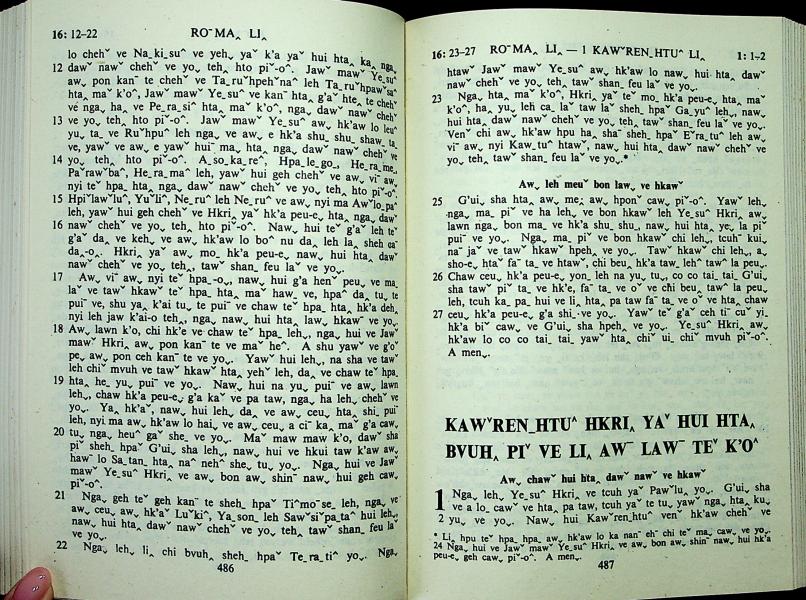 16: 12–22 RO¯MAˬ LIˬ
lo chehˇ ve Na_ki_suˆ ve yehˬ yaˇ k'a yaˇ hui htaˬ kaˬ ngaˬ
12 dawˇ nawˇ chehˇ ve yoˬ tehˬ hto piˇ-oˆ. Jawˇ mawˇ Ye_suˆ
awˬ pon kan¯ te chehˇ ve Ta_ruˇhpehˇnaˆ leh Ta_ruˇhpawˇsaˆ
htaˬ maˇ k'oˆ, Jawˇ mawˇ Ye_suˆ ve kan¯ htaˬ g'aˇ hteˬ te chehˇ
ve ngaˬ haˬ ve Pe_ra_siˆ htaˬ maˇ k'oˆ, ngaˬ dawˇ nawˇ chehˇ
13 ve yoˬ tehˬ hto piˇ-oˆ. Jawˇ mawˇ Ye_suˆ awˬ hk'aw lo leuˇ
yuˬ taˬ ve Ruˇhpuˆ leh ngaˬ ve awˬ e hk'a shuˬ shuˬ shaw_ ta_
ve, yawˇ ve awˬ e yawˇ hui¯ maˬ htaˬ ngaˬ dawˇ nawˇ chehˇ ve
14 yoˬ tehˬ hto piˇ-oˆ. A_so_ka_reˆ, Hpa_le_go_, He_ra_me_,
Paˇrawˇbaˬ, He_ra_maˆ leh, yawˇ hui geh chehˇ ve awˬ viˆ awˬ
nyi teˇ hpaˬ htaˬ ngaˬ dawˇ nawˇ chehˇ ve yoˬ tehˬ hto piˇ-oˆ.
15 Hpiˇlawˇluˬ, Yuˇliˆ, Ne_ruˆ leh Ne_ruˆ ve awˬ nyi ma Awˇlo_paˆ
leh, yawˇ hui geh chehˇ ve Hkriˬ yaˇ hk'a peu-eˬ htaˬ ngaˬ dawˇ
16 nawˇ chehˇ ve yoˬ tehˬ hto piˇ-oˆ. Nawˬ hui teˇ g'aˇ leh teˇ
g'aˇ daˬ ve kehˬ ve awˬ hk'aw lo boˆ nuˇ daˬ leh laˬ sheh caˇ
daˬ-oˬ. Hkriˬ yaˇ awˬ mo_ hk'a peu-eˬ nawˬ hui htaˬ dawˇ
nawˇ chehˇ ve yoˬ tehˬ tawˇ shan_ feu laˇ ve yoˬ.
17 Awˬ viˆ awˬ nyi teˇ hpaˬ-oˬ, nawˬ hui g'a hen¯ peuˬ ve ma_
laˇ ve tawˇ hkawˇ teˇ hpaˬ htaˬ maˇ hawˬ ve, hpaˆ daˬ tuˬ te
pui¯ ve, shuˬ yaˬ k'ai tuˬ te pui¯ ve chawˇ teˇ hpaˬ htaˬ hk'a dehˬ
nyi leh jaw k'ai-o tehˬ, ngaˬ nawˬ hui htaˬ lawˬ hkaw¯ ve yoˬ.
18 Awˬ lawn k'oˬ chi hk'e ve chawˇ teˇ hpaˬ lehˬ, ngaˬ hui ve Jawˇ
mawˇ Hkriˬ awˬ pon kan¯ te ve maˇ heˆ. A shu yawˇ ve g'oˇ
peˬ awˬ pon ceh kan¯ te ve yoˬ. Yawˇ hui lehˬ, na sha ve tawˇ
leh chi mvuh ve tawˇ hkawˇ htaˬ yehˇ leh, daˬ ve chawˇ teˇ hpaˬ
19 htaˬ heˬ yuˬ pui¯ ve yoˬ. Nawˬ hui na yuˬ pui¯ ve awˬ lawn
lehˬ, chaw hk'a peu-eˬ g'a kaˇ ve pa taw, ngaˬ ha lehˬ chehˇ ve
yoˬ. Yaˬ hk'aˇ, nawˬ hui leh daˬ ve awˬ ceuˬ htaˬ shiˬ pui¯
leh, nyi ma awˬ hk'aw lo hai_ ve awˬ ceuˬ a ciˆ kaˬ maˇ g'a cawˬ
20 tuˬ ngaˬ heuˆ gaˇ she_ ve yoˬ. Maˇ maw maw k'o, dawˇ sha
piˇ shehˬ hpaˇ G'uiˬ sha lehˬ, nawˬ hui ve hkui taw k'aw awˬ
hawˇ lo Sa_tan_ htaˬ naˆ nehˆ sheˬ tuˬ yoˬ. Ngaˬ hui ve Jawˇ
mawˇ Ye_suˆ Hkriˬ ve awˬ bon awˬ shin¯ nawˬ hui geh cawˬ
piˇ-oˆ.
21 Ngaˬ geh teˇ geh kan¯ te shehˬ hpaˇ Tiˆmo¯se_ leh, ngaˬ ve
awˬ ceuˬ awˬ hk'aˇ Luˇkiˆ, Ya_son_ leh Sawˇsiˇpa_taˆ hui lehˬ,
nawˬ hui htaˬ dawˇ nawˇ chehˇ ve yoˬ tehˬ tawˇ shan_ feu laˇ
ve yoˬ.
22 Ngaˬ lehˬ liˬ chi bvuhˬ shehˬ hpaˇ Te_ra_tiˆ yoˬ. Ngaˬ
486
16: 23–27 RO¯MAˬ LIˬ — 1 KAWˇREN_HTUˆ LIˬ 1: 1–2
htawˇ Jawˇ mawˇ Ye_suˆ awˬ hk'aw lo nawˬ hui htaˬ dawˇ
nawˇ chehˇ ve yoˬ tehˬ tawˇ shan_ feu laˇ ve yoˬ.
23 Ngaˬ htaˬ maˇ k'oˆ, Hkriˬ yaˇ teˇ mo_ hk'a peu-eˬ htaˬ maˇ
k'oˆ, haˬ yuˬ leh caˬ laˇ taw laˇ shehˬ hpaˇ Ga_yuˆ lehˬ, nawˬ
hui htaˬ dawˇ nawˇ chehˇ ve yoˬ tehˬ tawˇ shan_ feu laˇ ve yoˬ.
Venˇ chi awˬ hk'aw hpu haˬ shaˇ shehˬ hpaˇ Eˇra_tuˆ leh awˬ
viˆ awˬ nyi Kaw_tuˆ htawˇ, nawˬ hui htaˬ dawˇ nawˇ chehˇ ve
yoˬ tehˬ tawˇ shan_ feu laˇ ve yoˬ.*
Awˬ leh meuˇ bon lawˬ ve hkawˇ
25 G'uiˬ sha htaˬ awˬ meˬ awˬ hponˇ cawˬ piˇ-oˬ. Yawˇ lehˬ
ngaˬ maˬ piˇ ve ha lehˬ ve bon hkawˇ leh Ye_suˆ Hkriˬ awˬ
lawn ngaˬ bon maˬ ve hk'a shuˬ shuˬ nawˬ hui htaˬ yeˬ la piˇ
pui¯ ve yoˬ. Ngaˬ maˬ piˇ ve bon hkawˇ chi lehˬ, tcuhˇ kui_
naˆ jaˇ ve tawˇ hkawˇ hpehˬ ve yoˬ. Tawˇ hkawˇ chi lehˬ, a_
sho-eˬ htaˇ fa¯ taˬ ve htawˬ chi beuˬ hk'a taw_ lehˆ tawˆ la peuˬ.
26 Chaw ceuˬ hk'a peu-eˬ yonˬ leh na yuˬ tuˬ, co co tai_ tai_ G'uiˬ
sha tawˇ piˇ taˬ ve hk'eˬ fa¯ taˬ ve oˇ ve chi beuˬ tawˆ la peuˬ
leh, tcuh kaˬ paˬ hui ve liˬ htaˬ pa taw fa¯ taˬ ve oˇ ve htaˬ chaw
27 ceuˬ hk'a peu-eˬ g'a shi_ ve yoˬ. Yawˇ teˇ g'aˇ ceh ti¯ cuˇ yi_
hk'a biˇ cawˬ ve G'uiˬ sha hpehˬ ve yoˬ. Ye_suˆ Hkriˬ awˬ
hk'aw lo co co tai_ tai_ yawˇ htaˬ chiˇ ui_ chi mvuh piˇ-oˆ.
A menˬ.
KAWˇREN_HTUˆ HKRIˬ YAˇ HUI HTAˬ
BVUHˬ PIˇ VE LIˬ AW¯ LAW¯ TEˇ K'Oˆ
Awˬ chawˇ hui htaˬ dawˇ nawˇ ve hkawˇ
1 Ngaˬ lehˬ Ye_suˆ Hkriˬ ve tcuh yaˇ Pawˇluˬ yoˬ. G'uiˬ sha
ve a loˬ cawˇ ve htaˬ pa taw, tcuh yaˇ te tuˬ yawˇ ngaˬ htaˬ kuˬ
2 yuˬ ve yoˬ. Nawˬ hui Kawˇren_htuˆ venˇ hk'aw chehˇ ve
* Liˬ hpu teˇ hpaˬ hpaˬ awˬ hk'aw lo ka nan¯ ehˇ chi teˇ maˬ cawˬ ve yoˬ.
24 Ngaˬ hui ve Jawˇ mawˇ Ye_suˆ Hkriˬ ve awˬ bon awˬ shin¯ nawˬ hui hk'a
peu-eˬ geh cawˬ piˇ-oˆ. A menˬ.
487